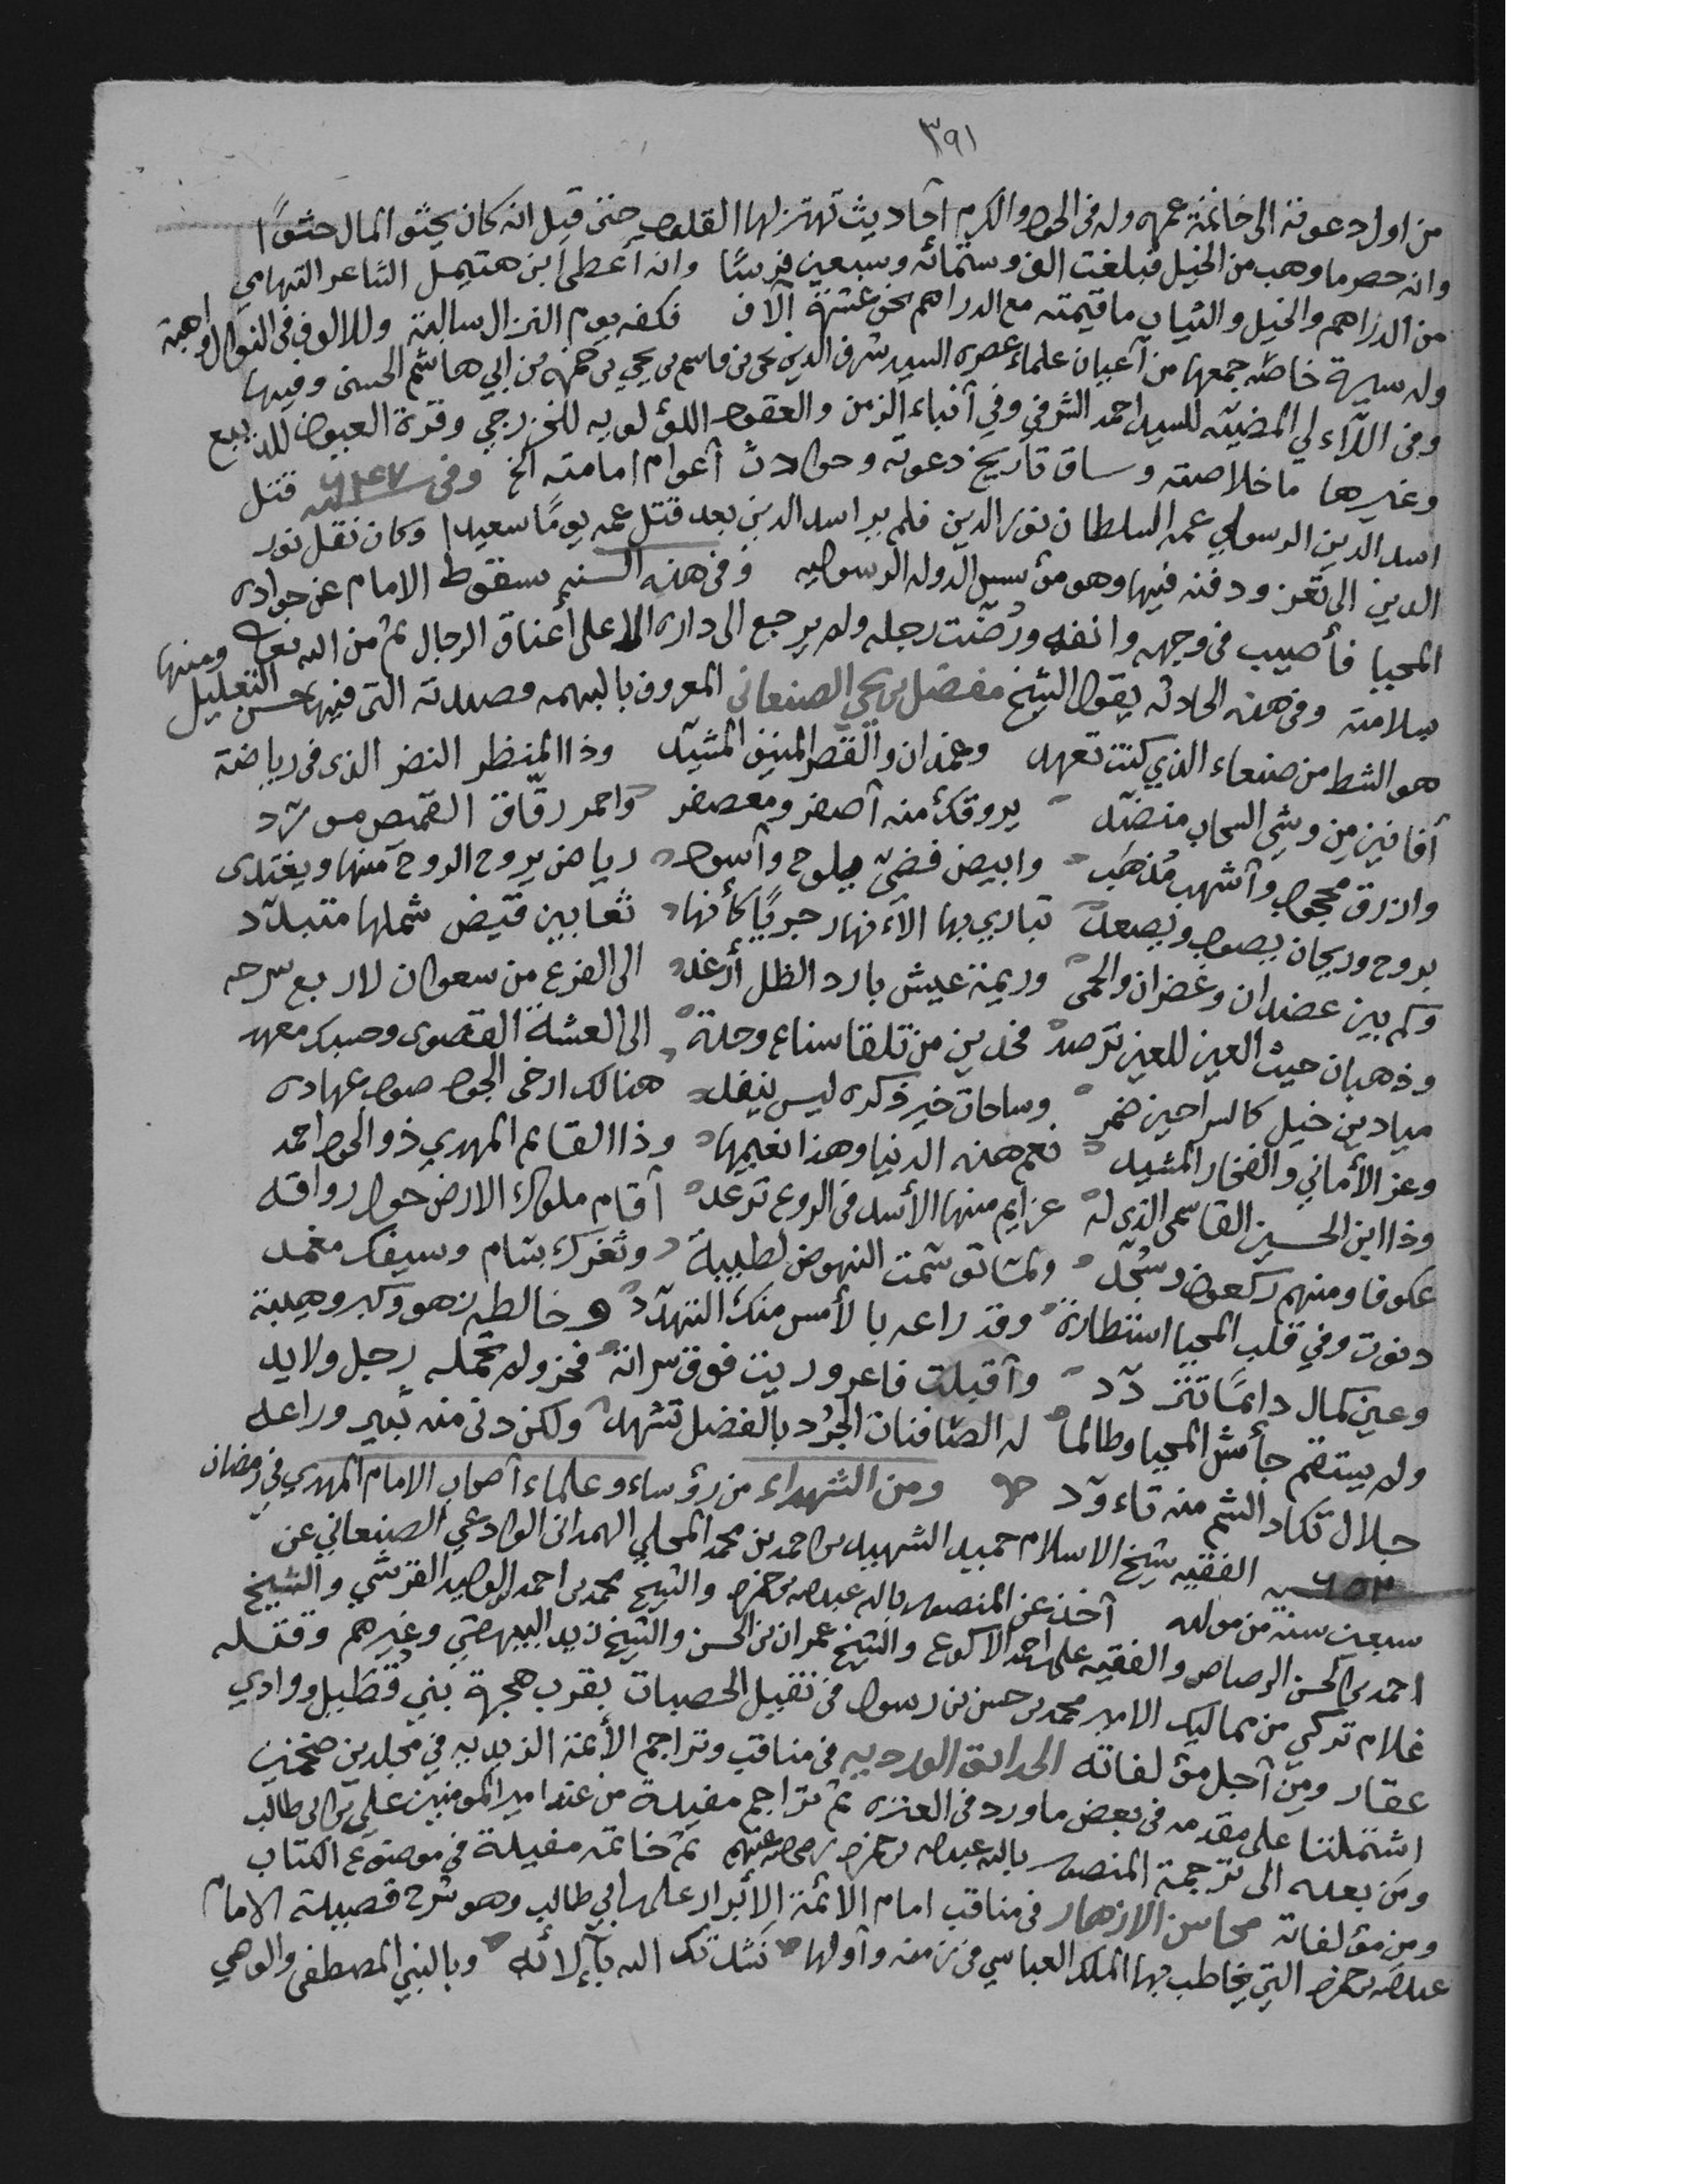 ٣٩١
من اول دعوته الى خاتمة عمره وله فى الجود والكرم أحاديث تهتز لها القلوب حتى قيل انه كان يحثو المال حثوًا
وانه حصر ما وهب من الخيل فبلغت الف وستمائه وسبعين فرسًا وانه أعطى ابن هتيمل الشاعر التهامي
من الدراهم والخيل والثياب ما قيمته مع الدراهم نحو عشرة آلاف فكفه يوم النزال سالبة وللالوف فى النوال واهبة
وله سيرة خاصه جمعها من أعيان علماء عصره السيد شرف الدين يحي بن قاسم بن يحي بن حمزه بن ابي هاشم الحسنى وفيها
وفى اللآلي المضيئه للسيد احمد الشرفي وفي أنباء الزمن والعقود اللؤلويه للخزرجي وقرة العيون للديبع
وغيرها ما خلاصته وساق تاريخ دعوته وحوادث أعوام امامته الخ وفى سنة ٦٤٧ قتل
اسد الدين الرسولي عمه السلطان نور الدين فلم ير اسد الدين بعد قتل عمه يومًا سعيدا وكان نقل نور
الدين الى تعز ودفنه فيها وهو مؤسس الدوله الرسوليه وفى هذه السنه سقوط الامام عن جواده
المحيا فأصيب فى وجهه وانفه ورُضّت رجله ولم يرجع الى داره الا على أعناق الرجال ثم من الله تعالى
بسلامته وفى هذه الحادثه يقول الشيخ مفضل بن يحي الصنعانى المعروف قصيدته التى فيها حسن التعليل ومنها
هو الشط من صنعاء الذي كنت تعهد وغمدان والقصر المنيف المشيّد وذا المنظر النضر الذى فى رياضة
أفانين من وشي السحاب منضّد يروقك منه أصفر ومعصفر واحمر رقّاق القميص مورّد
وازرق وأشهب مُذهَب وابيض فضيّ يلوح وأسود رياض يروح الروح منها ويغتدى
بروح وريحان يصوب ويصعد تباري بها الأنهار جريًا كأنها ثعابين قيض شملها متبدّد
وكم بين عضدان وغضران والحمى وريمة عيش بارد الظل أرغد الى الفرع من سعوان لاربع سرحه
وذهبان حيث العين للعين ترصد فخدين من تلقا سناع وحدة الى العشة القصوى وحسبك معهد
ميادين خيل كالسراحين ضمر وساحات خير ذكره ليس ينفد هنالك ارخى الجود صوب عهاده
وعز الأماني والفخار المشيد نعم هذه الدنيا وهذا نعيمها وذا القايم المهدي ذو الجود احمد
وذا ابن الحسين القاسمى الذى له عزايم منها الأسد فى الروع ترعد أقام ملوك الارض حول رواقه
عكوفا ومنهم ركعون وسُجّد ولما توسمت النهوض لطيبة وثغرك بسّام وسيفك مغمد
دنوت وفي قلب المحيا استطارة وقد راعه بالأمس منك التهدّد وخالطه زهو وكبر وهيبة
وعين كمال دائمًا تتردّد وأقبلت فاعروريت فوق سراته فخر ولم تحمله رجل ولا يد
ولم يستقم جأش المحيا وطالما له الصّافنات الجُرد بالفضل تشهد ولكن دنى منه ثبير وراعه
جلال تكاد الشم منه تاءوّد ومن الشهداء من رؤساء وعلماء أصحاب الامام المهدي فى رمضان
سنة ٦٥٢ الفقيه شيخ الاسلام حميد الشهيد بن احمد بن محمد المحلي الهمدانى الوادعي الصنعاني عن
سبعين سنة من مولده أخذ عن المنصور بالله عبدالله بن حمزه والشيخ محمد بن احمد الوليد القرشي والشيخ
احمد بن الحسن الرصاص والفقيه على بن احمد الاكوع والشيخ عمران بن الحسن والشيخ زيد البيهقي وغيرهم وقتله
غلام تركي من مماليك الامير محمد بن حسن بن رسول فى نقيل الحصبات بقرب هجرة بني قطيل ووادي
عقار ومن أجل مؤلفاته الحدائق الورديه فى مناقب وتراجم الأئمة الزيديه في مجلدين ضخمين
اشتملتا على مقدمه فى بعض ما ورد فى العتره ثم تراجم مفيدة من عند امير المومنين علي بن ابى طالب
ومن بعده الى ترجمة المنصور بالله عبدالله بن حمزه رضى الله عنهم ثم خاتمه مفيدة فى موضوع الكتاب
ومن مؤلفاته محاسن الازهار فى مناقب امام الائمة الأبرار على بن ابي طالب وهو شرح قصيدة الامام
عبدالله بن حمزه التي يخاطب بها الملك العباسي فى زمنه وأولها نشدتك الله بآلائه وبالنبي المصطفى والوصي